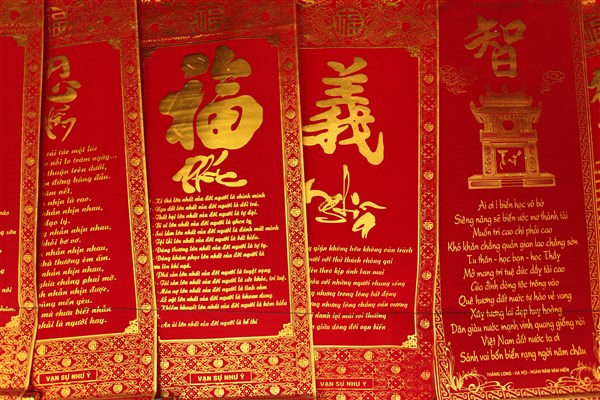 福
Phúc
- Kẻ thù lớn nhất của đời người là chính mình
- Ngu dốt lớn nhất của đời người là dối trá
- Thất bại lớn nhất của đời người là tự đại
- Bi ai lớn nhất của đời người là ghen tỵ
- Sai lầm lớn nhất của đời người là đánh mất mình
- Tội lỗi lớn nhất của đời người là bất hiếu
- Đáng thương lớn nhất của đời người là tự ty
- Đáng khâm phục lớn nhất của đời người là vươn
lên khi ngã
- Phá sản lớn nhất của đời người là tuyệt vọng
- Tài sản lớn nhất của đời người là sức khỏe, trí tuệ
- Món nợ lớn nhất của đời người là tình cảm
- Lễ vật lớn nhất của đời người là khoan dung
- Khiếm khuyết lớn nhất của đời người là kém hiểu
- An ủi lớn nhất của đời người là bố thí
VẠN SỰ NHƯ Ý
忍
cái tức một lúc
nỗi lo trăm ngày...
thuận trên dưới,
đứng hàng đầu.
nhịn là cao.
nhẫn nhịn nhau,
đạo lý.
nhẫn nhịn nhau,
khỏi bơ vơ.
nhẫn nhịn nhau,
nhà thường êm ấm.
nhẫn nhịn nhau,
nghĩa chẳng phai mờ.
nhẫn nhịn được,
mến yêu.
mà chưa biết nhẫn
phải là người hay.
VẠN SỰ NHƯ Ý
義
Nghĩa
giận không hờn không oán trách
với thử thách chông gai
theo kịp ánh ban mai
với những người chung sống
nhưng lòng không bất động
nhưng lòng chẳng vấn vương
danh lợi mãi coi thường
giữa dòng đời vạn biến
VẠN SỰ NHƯ Ý
智
Trí
Ai ơi ! biển học vô bờ
Siêng năng sẽ biến ước mơ thành tài
Muốn trí cao chí phải cao
Khó khăn chẳng quản gian lao chẳng sờn
Tu thân - học bạn - học Thầy
Mở mang trí tuệ đức dầy tài cao
Gia đình dòng tộc trông vào
Quê hương đất nước tự hào vẻ vang
Xây tương lai đẹp huy hoàng
Dân giàu nước mạnh vinh quang giống nòi
Việt Nam đất nước ta ơi
Sánh vai bốn biển rạng ngời năm châu
THĂNG LONG - HÀ NỘI - NGÀN NĂM VĂN HIẾN